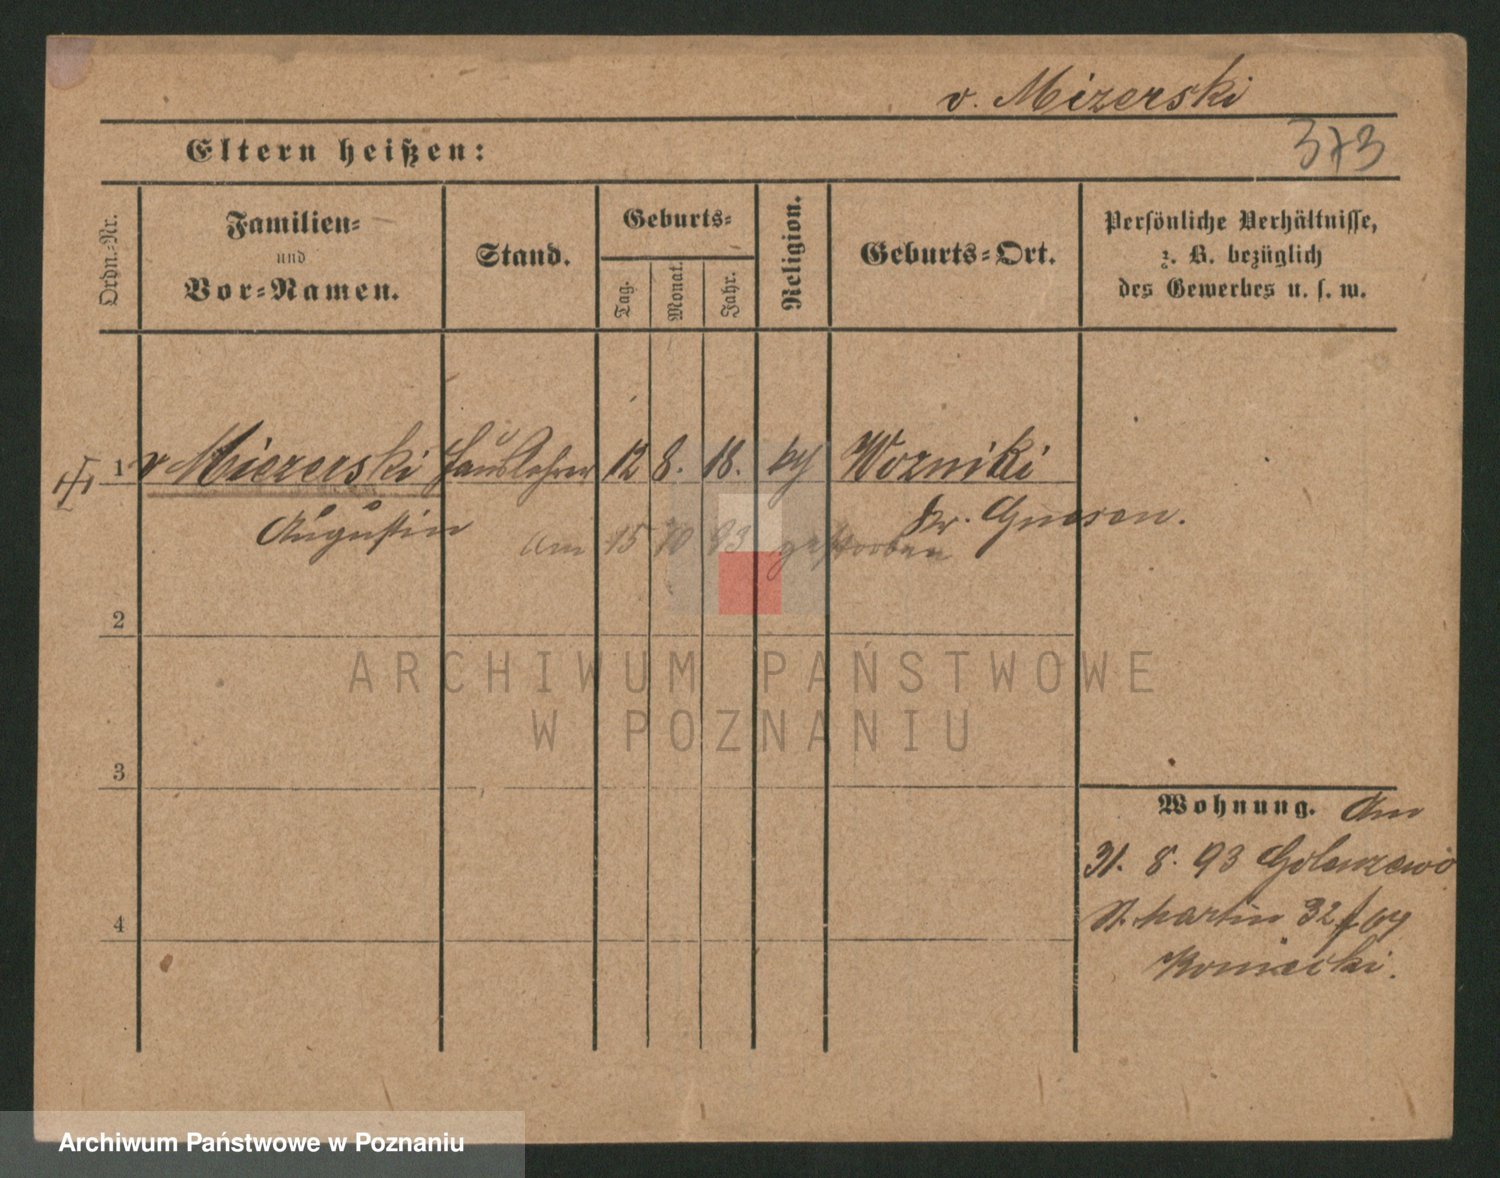 v. Mizerski
373
Eltern heißen:
Ordn.-Nr.
Familien-
und
Vor-Namen.
Stand.
Geburts-
Tag.
Monat.
Jahr.
Religion.
Geburts-Ort.
Persönliche Verhältnisse,
z. B. bezüglich
des Gewerbes u. s. w.
1 v Miezerski Hauslehrer 12 8. 18. kth Wozniki
Augustin Kr. Gnesen.
am 15 10 93 gestorben
2
3
4
Wohnung. Am
31. 8. 93
St. Martin 32
ARCHIWUM PAŃSTWOWE
W POZNANIU
Archiwum Państwowe w Poznaniu